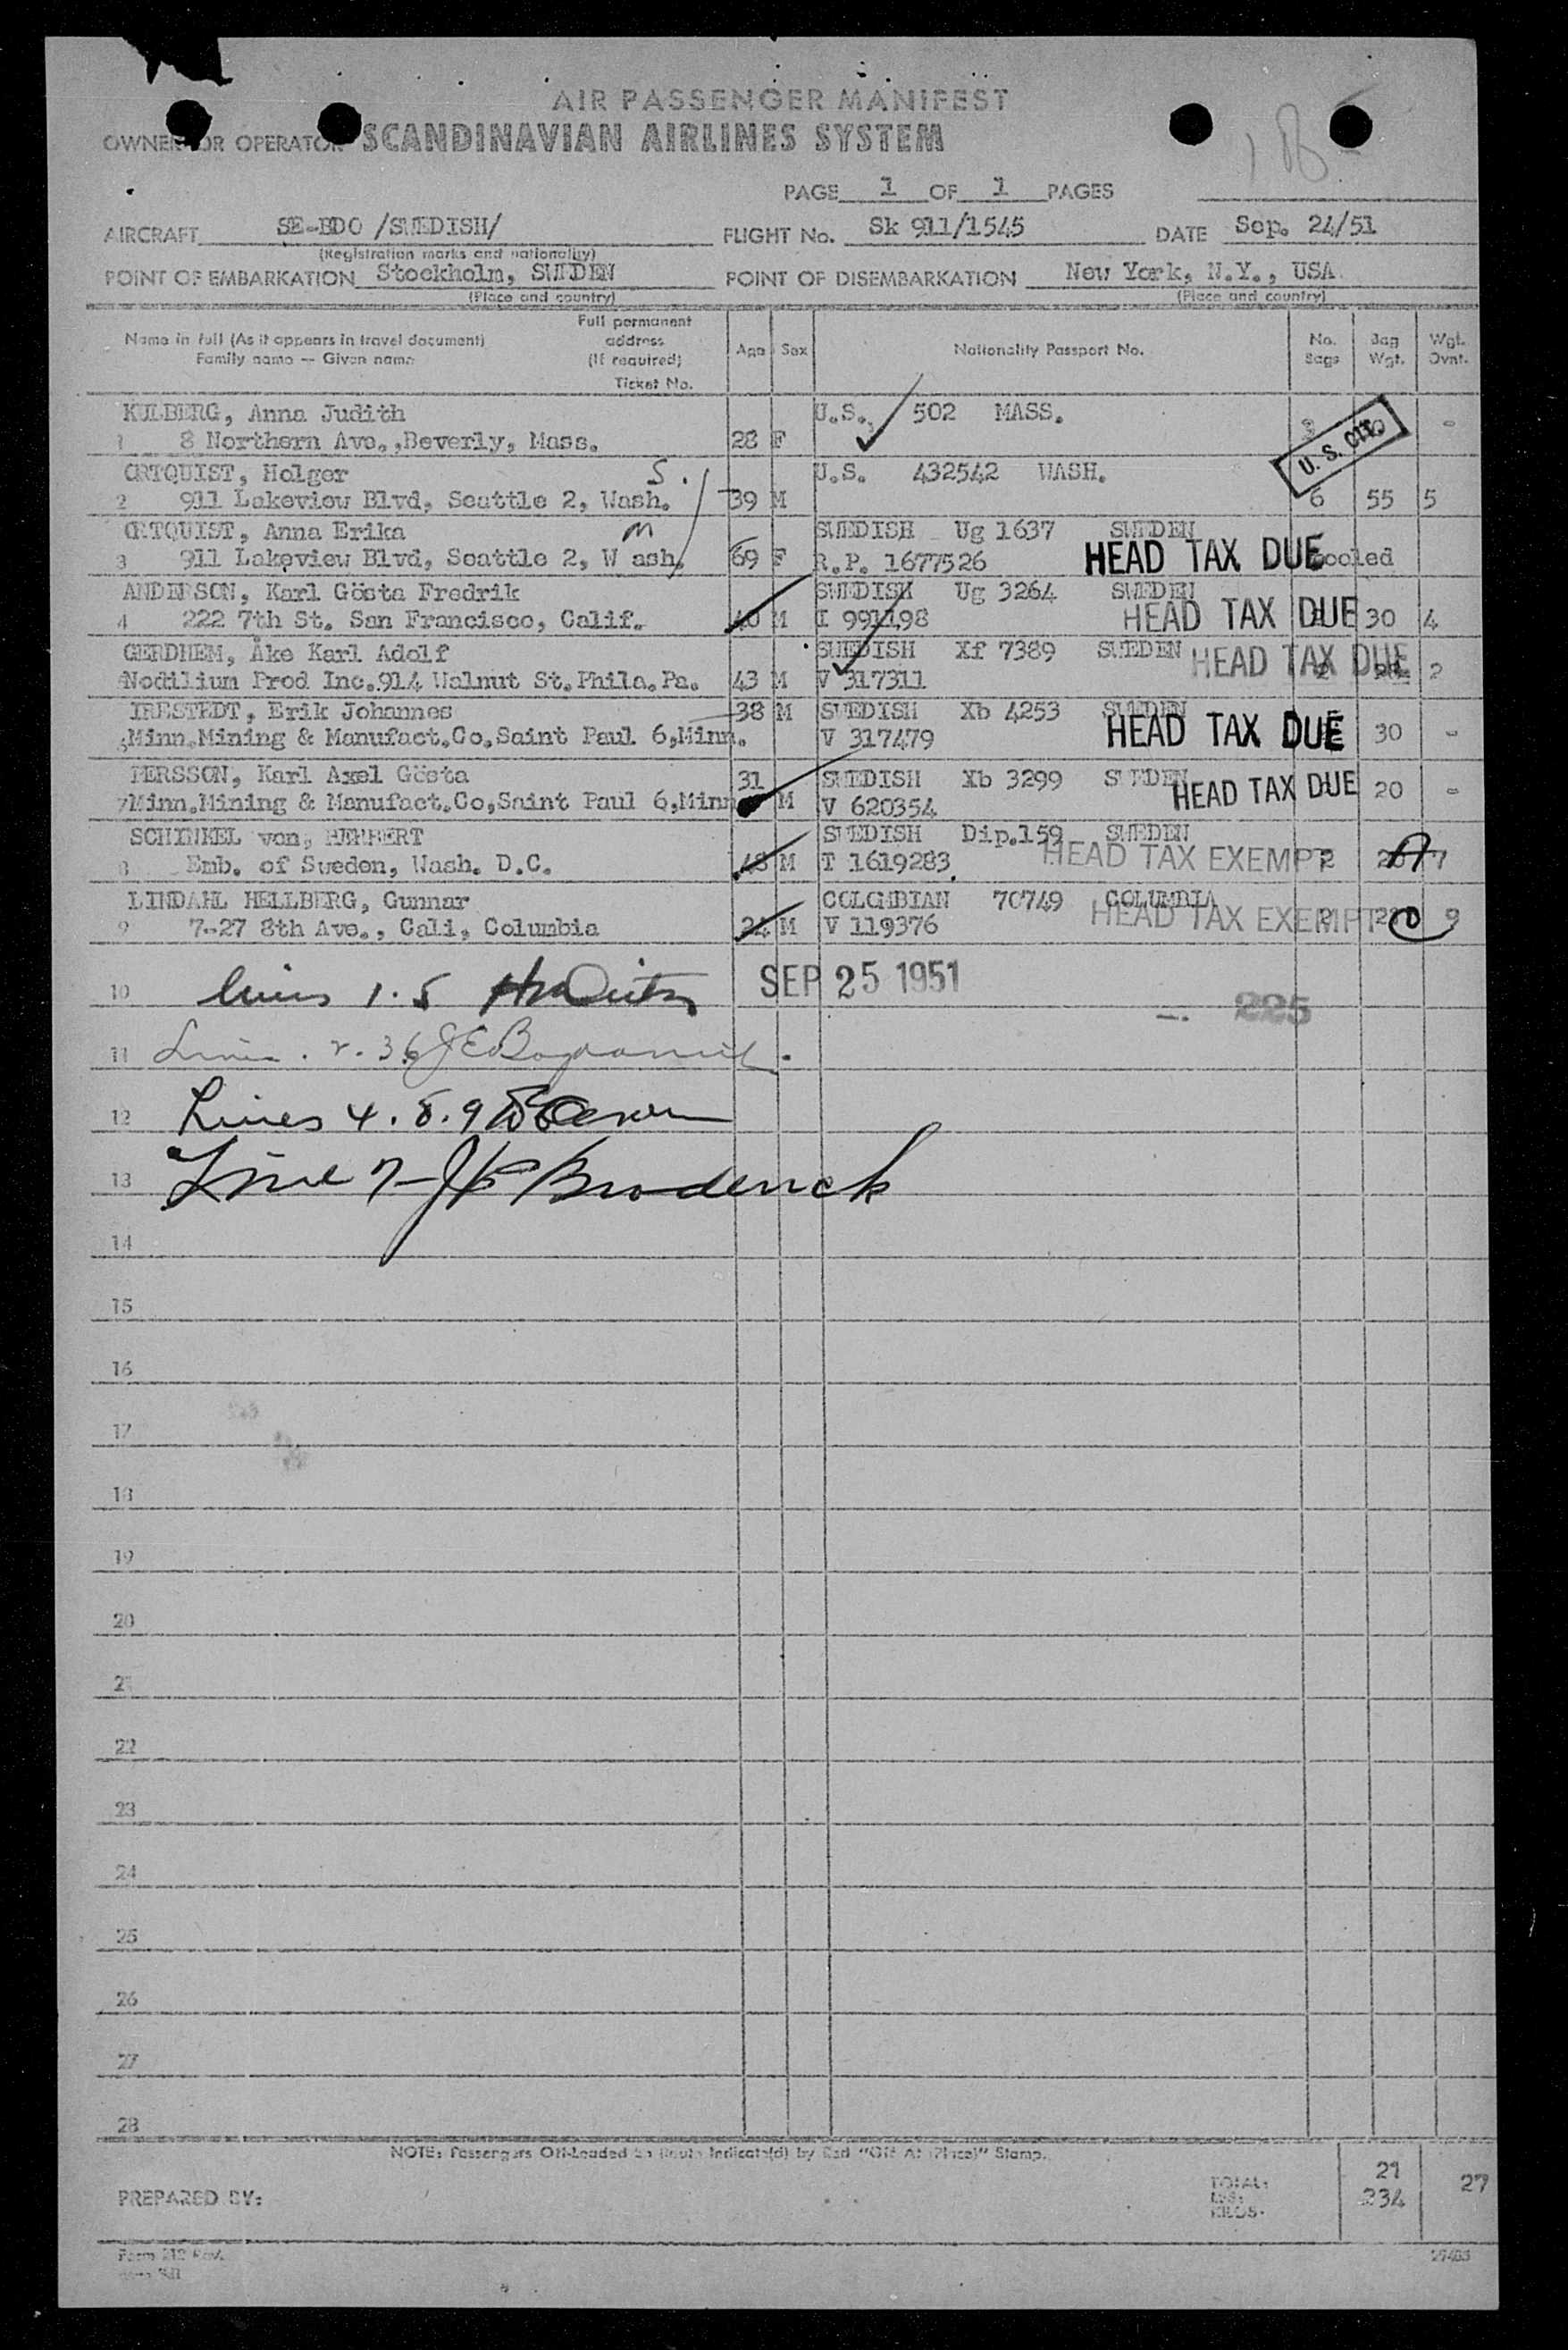 AIR PASSENGER MANIFEST
OWNER OR OPERATOR SCANDINAVIAN AIRLINES SYSTEM
PAGE 1 OF 1 PAGES
AIRCRAFT SE-BDO /SWEDISH/ FLIGHT No. Sk 911/1545 DATE Sep. 24/51
(Registration marks and nationality)
POINT OF EMBARKATION Stockholm, SWEDEN POINT OF DISEMBARKATION New York, N.Y., USA
(Place and country) (Place and country)
Name in full (As it appears in travel document) Family name — Given name Full permanent address (If required) Ticket No. Age Sex Nationality Passport No. No. Bags Bag Wgt. Wgt. Ovnt.
KULBERG, Anna Judith U.S., 502 MASS.
1 8 Northern Ave.,Beverly, Mass. 28 F 3 - U.S. CIT.
ORTQUIST, Holger S. U.S. 432542 WASH.
2 911 Lakeview Blvd, Seattle 2, Wash. 39 M 6 55 5
ORTQUIST, Anna Erika M SWEDISH Ug 1637 SWEDEN
3 911 Lakeview Blvd, Seattle 2, W ash. 69 F R.P. 1677526 HEAD TAX DUE pooled
ANDERSON, Karl Gösta Fredrik SWEDISH Ug 3264 SWEDEN
4 222 7th St. San Francisco, Calif. 40 M I 991198 HEAD TAX DUE 30 4
GERDHEM, Åke Karl Adolf SWEDISH Xf 7389 SWEDEN HEAD TAX DUE
Nodilium Prod Inc.914 Walnut St.Phila.Pa. 43 M V 317311 2 2
IRESTEDT, Erik Johannes 38 M SWEDISH Xb 4253 SWEDEN
Minn.Mining & Manufact.Co,Saint Paul 6,Minn. V 317479 HEAD TAX DUE 30 -
PERSSON, Karl Axel Gösta 31 SWEDISH Xb 3299 SWEDEN
7 Minn.Mining & Manufact.Co,Saint Paul 6,Minn M V 620354 HEAD TAX DUE 20 -
SCHINKEL von, HERBERT SWEDISH Dip.159 SWEDEN
8 Emb. of Sweden, Wash. D.C. 48 M T 1619283 HEAD TAX EXEMPT 2 7
LINDAHL HELLBERG, Gunnar COLOMBIAN 70749 COLUMBIA
9 7-27 8th Ave., Cali, Columbia 24 M V 119376 HEAD TAX EXEMPT 2 9
10 lines 1.5 SEP 25 1951
225
11
12 Lines 4.8.9
13 Line 7- Broderick
14
15
16
17
18
19
20
21
22
23
24
25
26
27
28
NOTE: Passengers Off-Loaded En Route Indicate(d) by Red "Off At (Place)" Stamp.
PREPARED BY: TOTAL: LBS: KILOS: 21 234 27